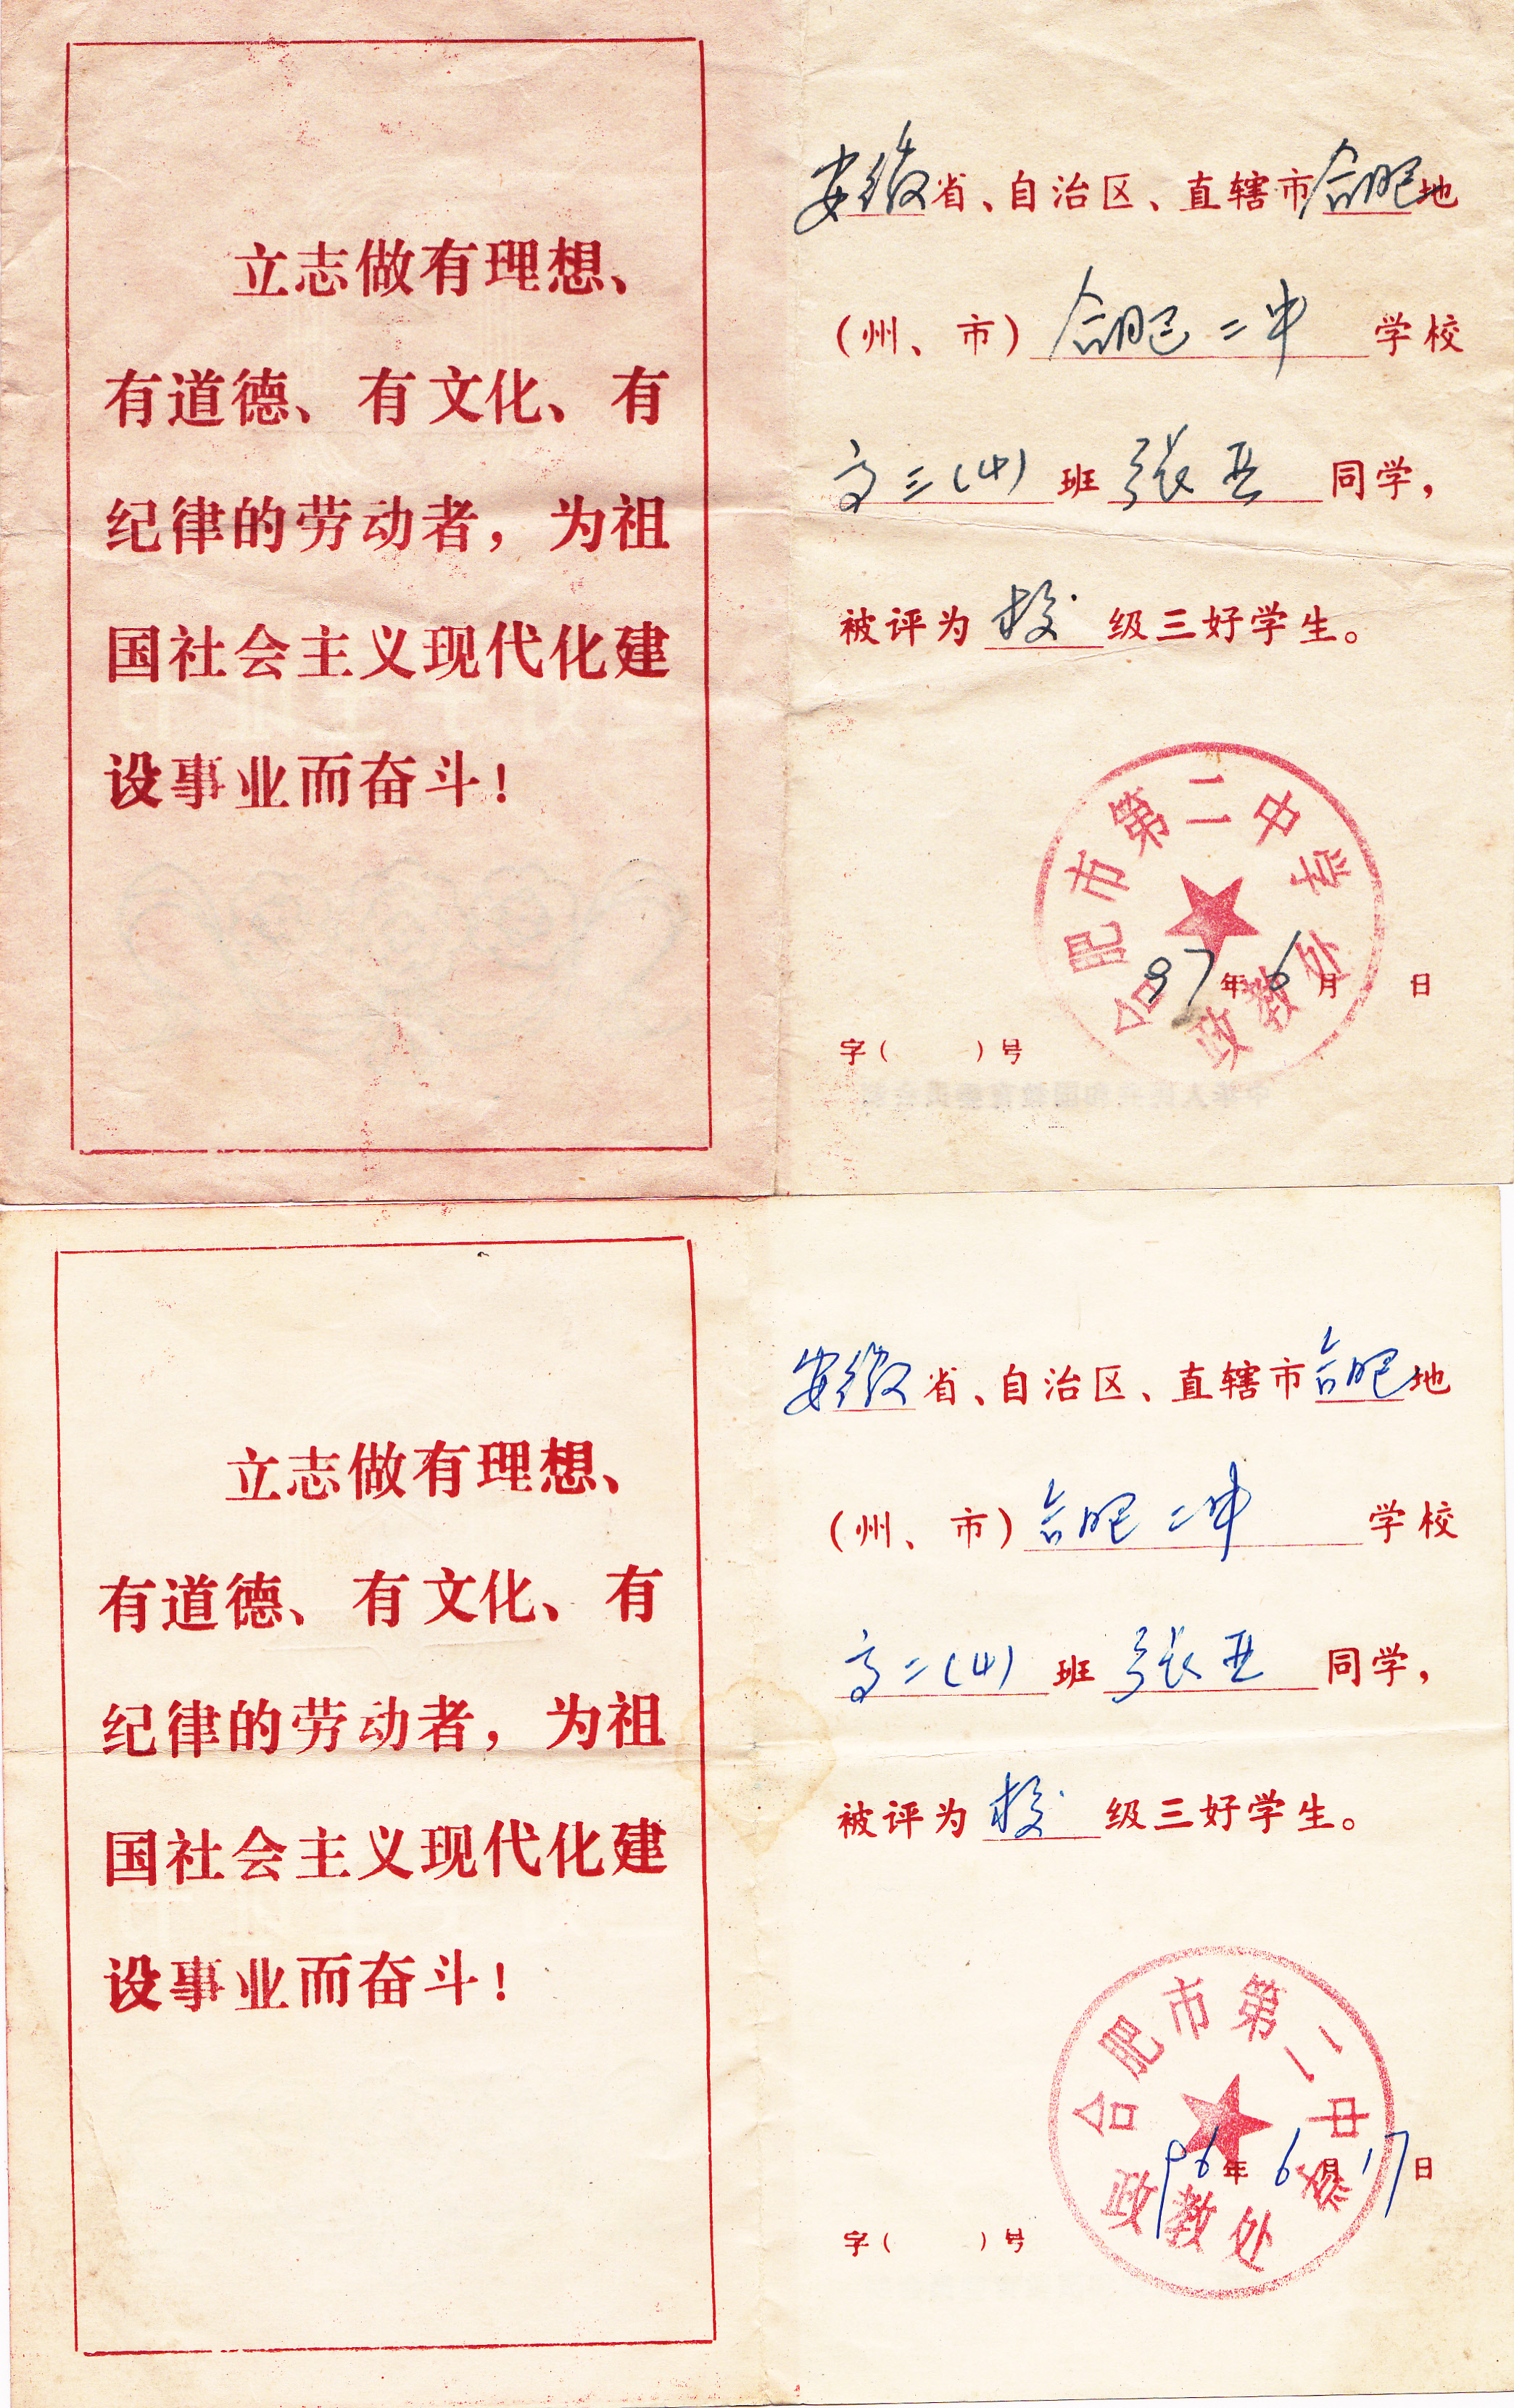 立志做有理想、
有道德、有文化、有
纪律的劳动者，为祖
国社会主义现代化建
设事业而奋斗！
安徽省、自治区、直辖市合肥地
（州、市）合肥二中学校
高三(4)班张亚同学，
被评为校级三好学生。
合肥市第二中学
政教处
97年6月 日
字（ ）号
立志做有理想、
有道德、有文化、有
纪律的劳动者，为祖
国社会主义现代化建
设事业而奋斗！
安徽省、自治区、直辖市合肥地
（州、市）合肥二中学校
高二(4)班张亚同学，
被评为校级三好学生。
合肥市第二中学
政教处
96年6月17日
字（ ）号